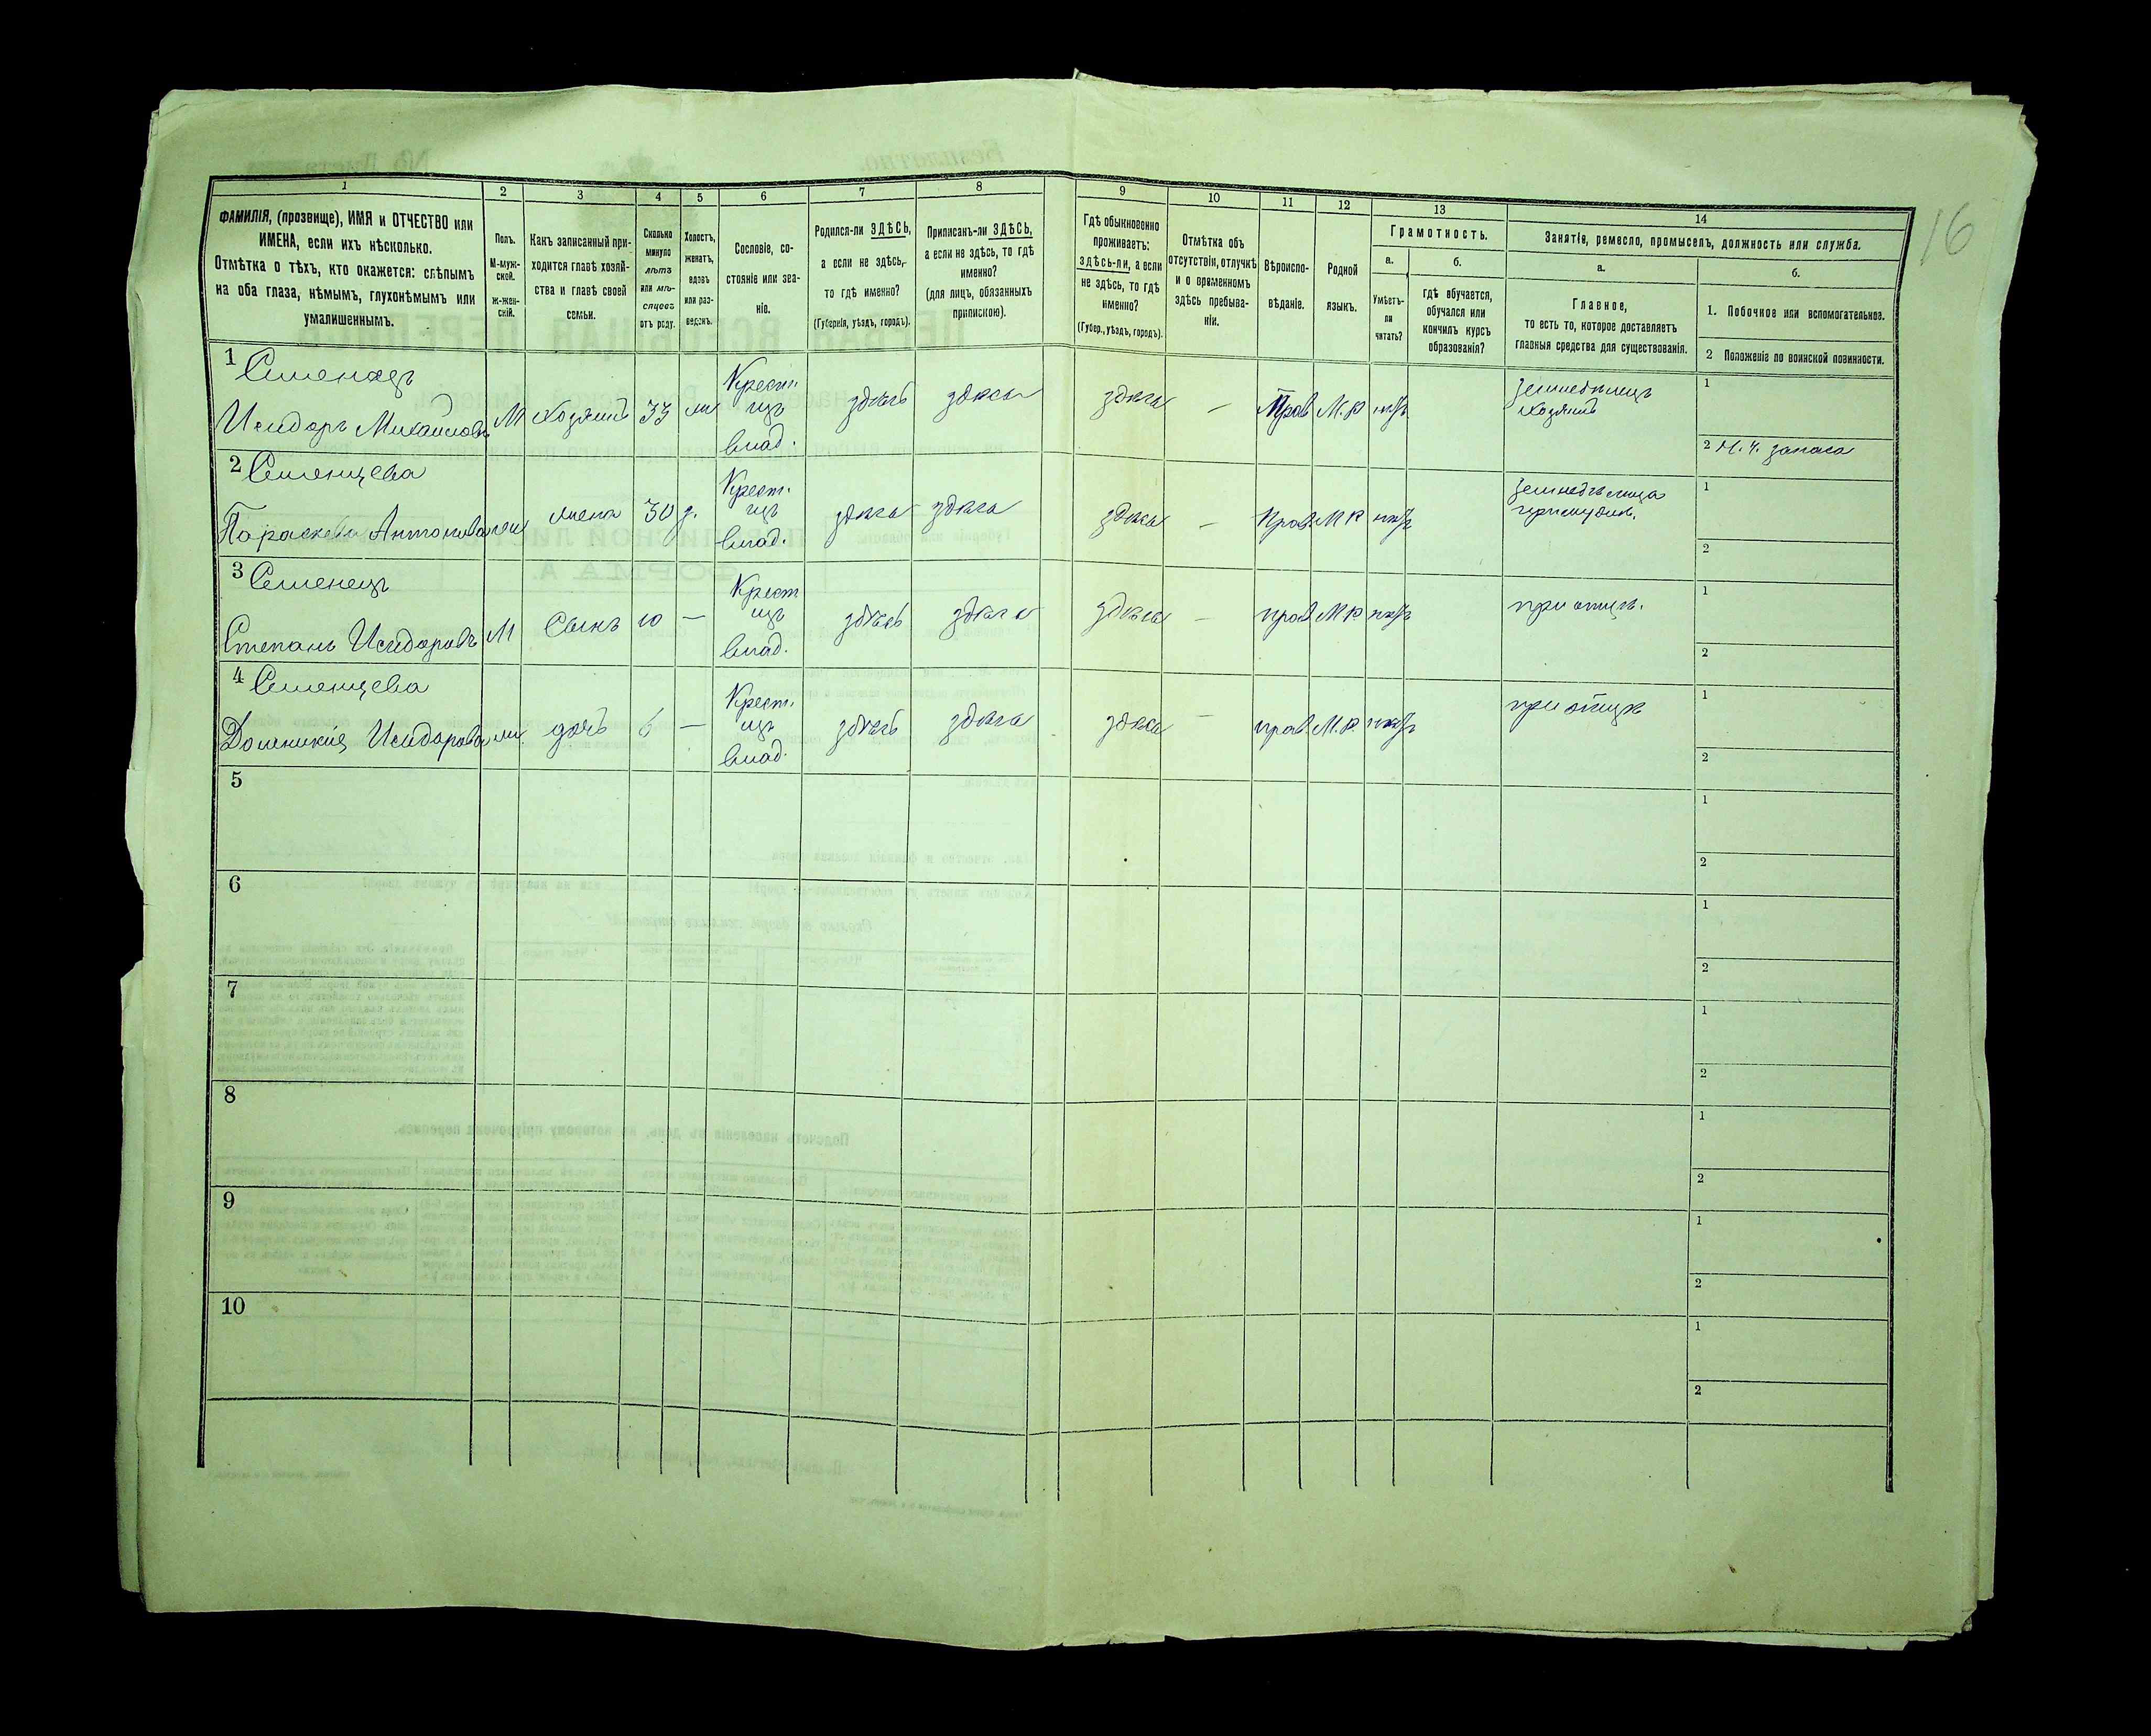 16
1
ФАМИЛІЯ, (прозвище), ИМЯ и ОТЧЕСТВО или
ИМЕНА, если ихъ нѣсколько.
Отмѣтка о тѣхъ, кто окажется: слѣпымъ
на оба глаза, нѣмымъ, глухонѣмымъ или
умалишеннымъ.
2
Полъ.
М-муж-
ской.
Ж-жен-
скій.
3
Какъ записанный при-
ходится главѣ хозяй-
ства и главѣ своей
семьи.
4
Сколько
минуло
лѣтъ
или мѣ-
сяцевъ
отъ роду.
5
Холостъ,
женатъ,
вдовъ
или раз-
веденъ.
6
Сословіе, со-
стояніе или зва-
ніе.
7
Родился-ли ЗДѢСЬ,
а если не здѣсь,
то гдѣ именно?
(Губернія, уѣздъ, городъ).
8
Приписанъ-ли ЗДѢСЬ,
а если не здѣсь, то гдѣ
именно?
(для лицъ, обязанныхъ
припискою).
9
Гдѣ обыкновенно
проживаетъ:
здѣсь-ли, а если
не здѣсь, то гдѣ
именно?
(Губер., уѣздъ, городъ).
10
Отмѣтка объ
отсутствіи, отлучкѣ
и о временномъ
здѣсь пребыва-
ніи.
11
Вѣроиспо-
вѣданіе.
12
Родной
языкъ.
13
Грамотность.
а.
Умѣетъ-
ли
читать?
б.
гдѣ обучается,
обучался или
кончилъ курсъ
образованія?
14
Занятія, ремесло, промыселъ, должность или служба.
а.
Главное,
то есть то, которое доставляетъ
главныя средства для существованія.
б.
1. Побочное или вспомогательное.
2 Положеніе по воинской повинности.
1 Семенецъ
Исидоръ Михаиловъ М Хозяинъ 33 Крестн. изъ влад. здѣсь здѣсь здѣсь — Прав М.Р. нѣтъ Земледѣлецъ хозяинъ
1
2 Н. Ч. запаса
2 Семенцева
Параскева Антонова жена 30 Крест. изъ влад. здѣсь здѣсь здѣсь — Прав. М Р нѣтъ Земледѣлица
1
2
3 Семенецъ
Степанъ Исидоровъ М Сынъ 10 — Крест изъ влад. здѣсь здѣсь здѣсь — прав М Р нѣтъ при отцѣ.
1
2
4 Семенцева
Домникія Исидорова дочь 6 — Крест. изъ влад. здѣсь здѣсь здѣсь — прав. М.Р. нѣтъ при отцѣ
1
2
5
1
2
6
1
2
7
1
2
8
1
2
9
1
2
10
1
2